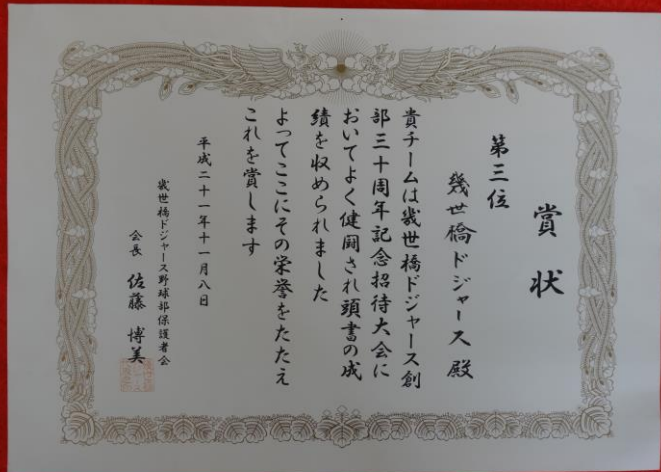 賞状
第三位
幾世橋ドジャース殿
貴チームは幾世橋ドジャース創
部三十周年記念招待大会に
おいてよく健闘され頭書の成
績を収められました
よってここにその栄誉をたたえ
これを賞します
平成二十一年十一月八日
幾世橋ドジャース野球部保護者会
会長 佐藤博美